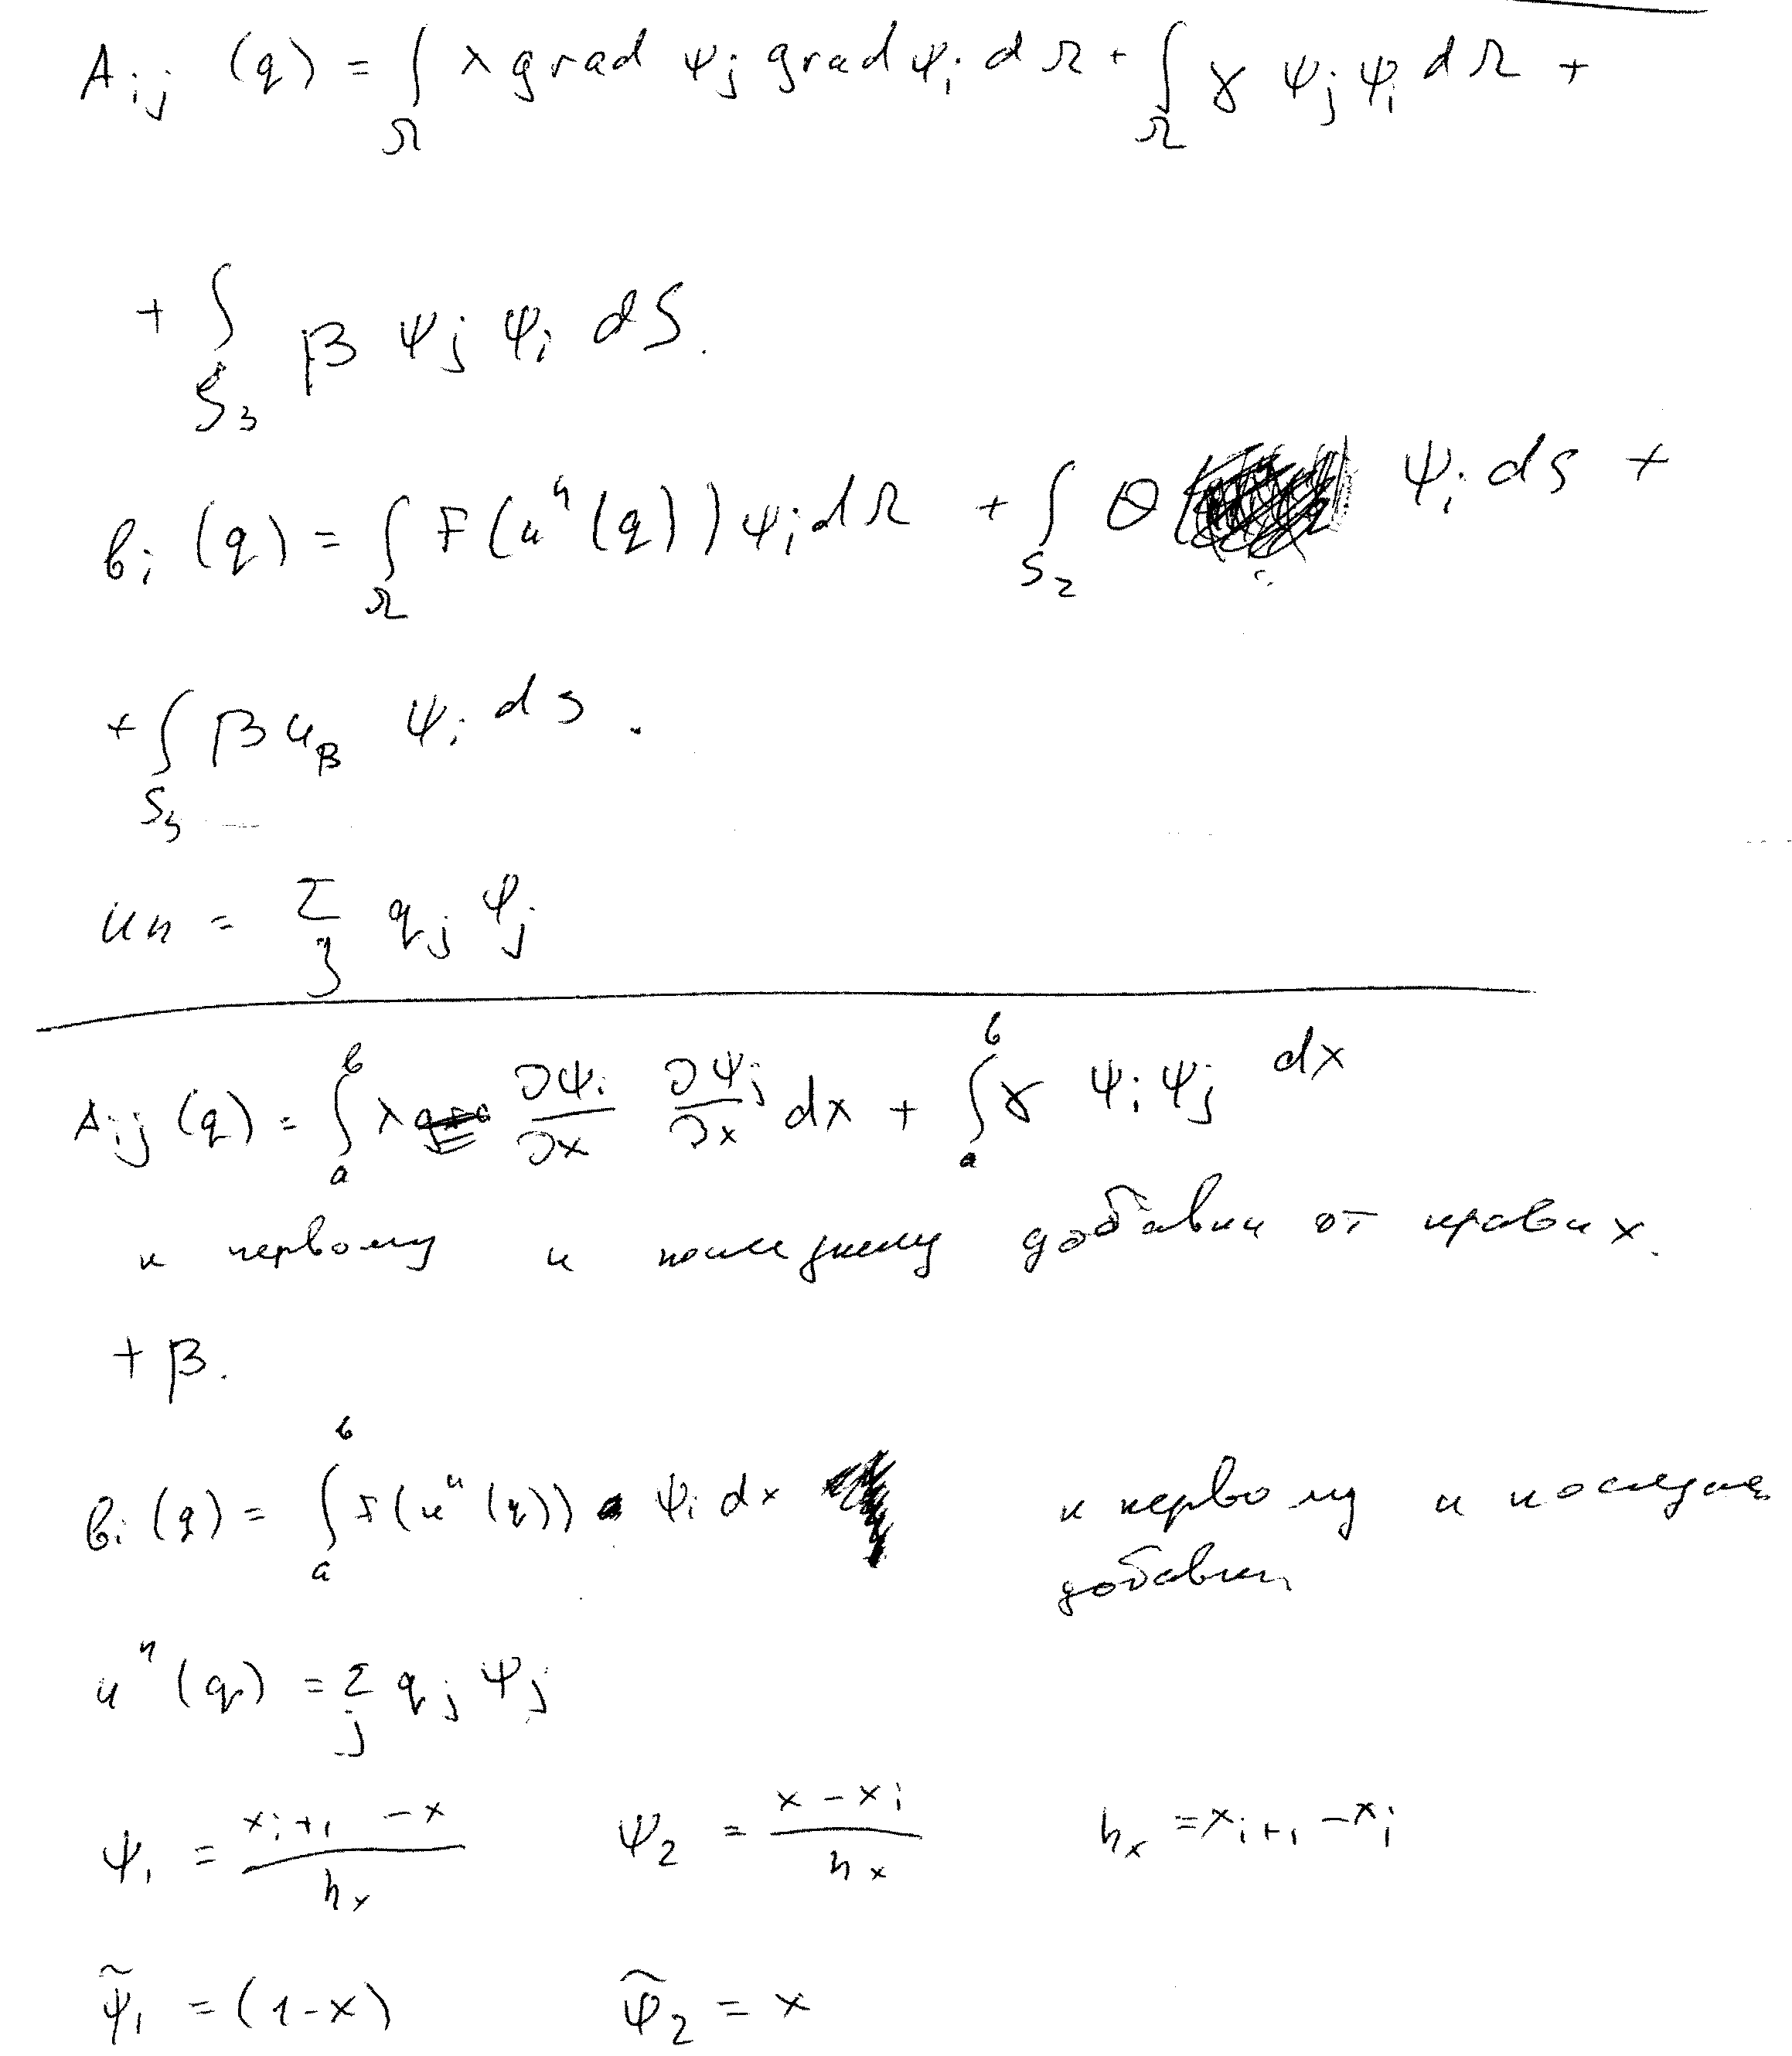 A_ij (q) = ∫_Ω λ grad ψ_j grad ψ_i dΩ + ∫_Ω γ ψ_j ψ_i dΩ +
+ ∫_S₃ β ψ_j ψ_i dS.
b_i (q) = ∫_Ω F(u^h (q)) ψ_i dΩ + ∫_S₂ θ ψ_i ds +
+ ∫_S₃ β u_β ψ_i ds.
u^h = Σ_j q_j ψ_j
A_ij (q) = ∫_a^b λ ∂ψ_i/∂x ∂ψ_j/∂x dx + ∫_a^b γ ψ_i ψ_j dx
к первому и последнему добавки от краевых.
+ β.
b_i (q) = ∫_a^b f(u^h (q)) ψ_i dx к первому и последнем
добавки
u^h (q) = Σ_j q_j ψ_j
ψ₁ = (x_{i+1} - x)/h_x ψ₂ = (x - x_i)/h_x h_x = x_{i+1} - x_i
ψ̃₁ = (1-x) φ̃₂ = x